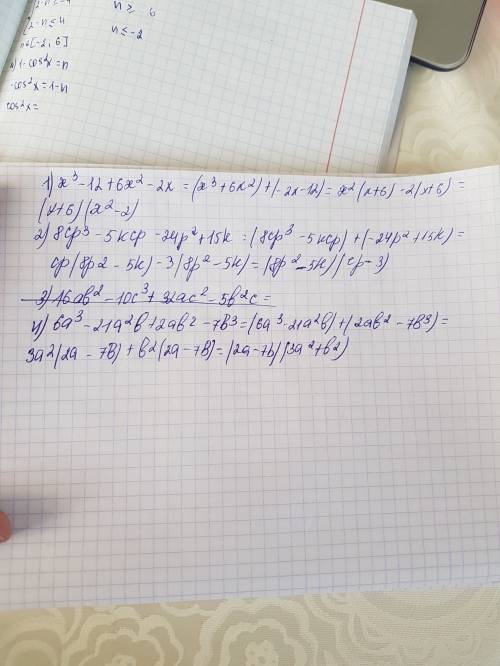 2-n≤4
n∈[-2;6]
1-cos²x=n
-cos²x=1-n
cos²x=
n≥ 6
n≤-2
1) x³-12+6x²-2x=(x³+6x²)+(-2x-12)=x²(x+6)-2(x+6)=
(x+6)(x²-2)
2) 8cp³-5kcp-24p²+15k=(8cp³-5kcp)+(-24p²+15k)=
cp(8p2-5k)-3(8p²-5k)=(8p²-5k)(cp-3)
3) 16ab²-10c³+32ac²-5b²c=
4) 6a³-21a²b+2ab²-7b³=(6a³-21a²b)+(2ab²-7b³)=
3a²(2a-7b)+b²(2a-7b)=(2a-7b)(3a²+b²)